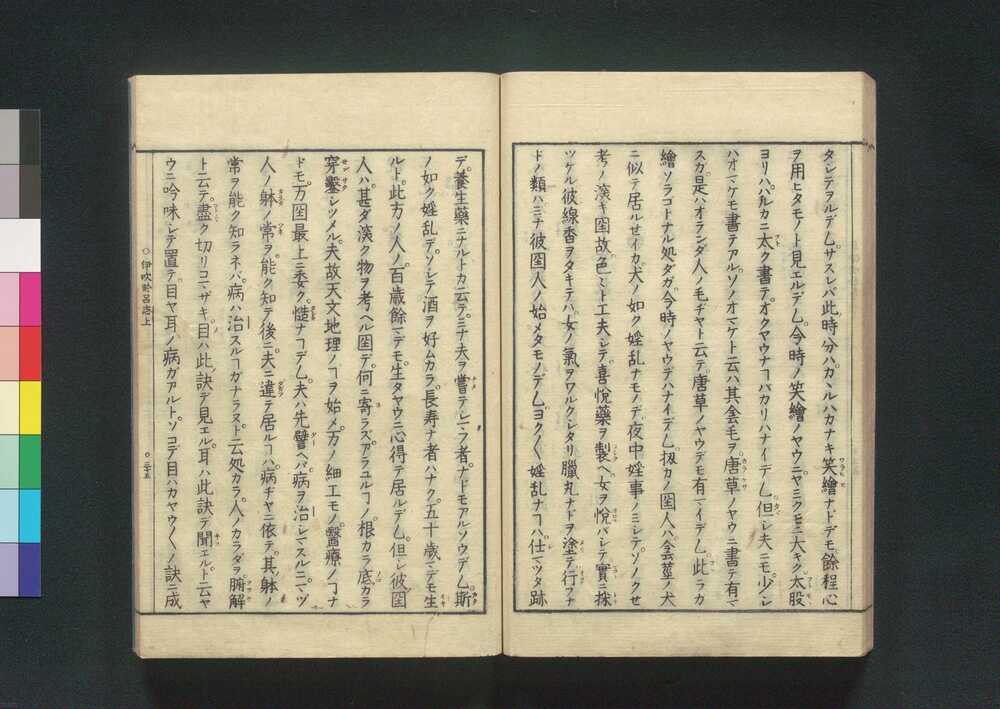 タシデヲルデ𪜈サスレバ此時分ハカヽルハカナキ笑繪ナドデモ餘程心
ヲ用ヒタモノト見エルデ𪜈今時ノ笑繪ノヤウニヤミクモニ大キク太股
ヨリハバルカニ太ク書テオクヤウナヿバカリハナイデ𪜈但シ夫ニモ少シ
ハオマケモ書テアルソノオマケト云ハ其陰毛ヲ唐草ノヤウニ書テ有マ
スガ是ハオランダ人ノ毛ヂヤト云テ唐草ノヤウデモ有マイデ𪜈此ラカ
繪ソラゴトナル処ダガ今時ノヤウデハナイデ𪜈扨カノ国人ハ陰莖ノ犬
ニ似テ居ルセイカ犬ノ如ク婬乱ナモノデ夜中婬事ノミシテソノクセ
考ノ深キ国故色々ト工夫シテ喜悦藥ヲ製ヘ女ヲ悦バシテ實ヲ採
ツケル彼線香ヲタキテハ女ノ氣ヲワルクシタリ臘丸ナドヲ塗テ行フナ
ドノ類ハミナ彼国人ノ始メタモノデ𪜈ヨク〱婬乱ナヿハ仕マツタ跡
デ養生藥ニナルトカ云テミナ夫ヲ嘗テシマフ者ナドモアルソウデ𪜈斯
ノ如ク婬乱デソシテ酒ヲ好ムカラ長寿ナ者ハナク五十歳マデモ生
ルト此方ノ人ノ百歳餘マデモ生タヤウニ心得テ居ルデ𪜈但シ彼国
人ハ甚ダ深ク物ヲ考ヘル国デ何ニ寄ラズアラユルヿノ根カラ底カラ
穿鑿シツメル夫故天文地理ノヿヲ始メ万ノ細工モノ醫療ノヿナ
ドモ万国最上ニ委ク慥ナヿデ𪜈夫ハ先譬ヘバ病ヲ治シマスルニマヅ
人ノ躰ノ常ヲ能ク知テ後ニ夫ニ違テ居ルヿハ病ヂヤニ依テ其躰ノ
常ヲ能ク知ラネバ病ハ治スルヿガナラヌト云処カラ人ノカラダヲ腑解
ト云テ盡ク切リコマザキ目ハ此訣デ見エル耳ハ此訣デ聞エルト云ヤ
ウニ吟味シテ置テ目ヤ耳ノ病ガアルトソコデ目ハカヤウ〱ノ訣ニ成
○伊吹於呂志上
○二十五